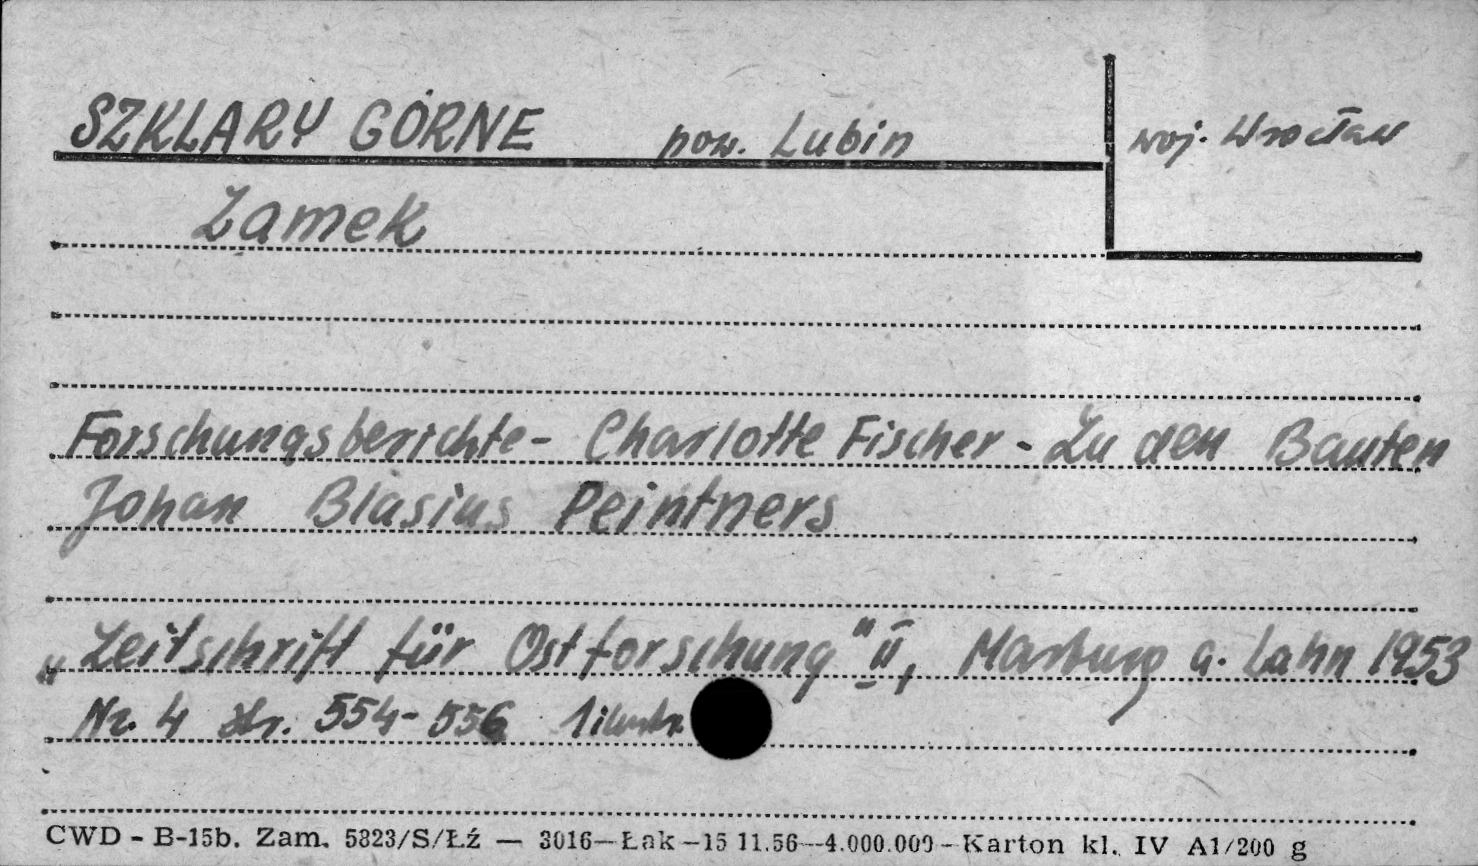 SZKLARY GÓRNE pow. Lubin woj. Wrocław
Zamek
Forschungsberichte - Charlotte Fischer - Zu den Bauten
Johan Blasius Peintners
„Zeitschrift für Ostforschung" II, Marburg a. Lahn 1953
Nr. 4 str. 554-556 1 ilustr.
CWD - B-15b. Zam. 5823/S/Łź — 3016—Łak—15 11.56—4.000.000—Karton kl. IV A1/200 g